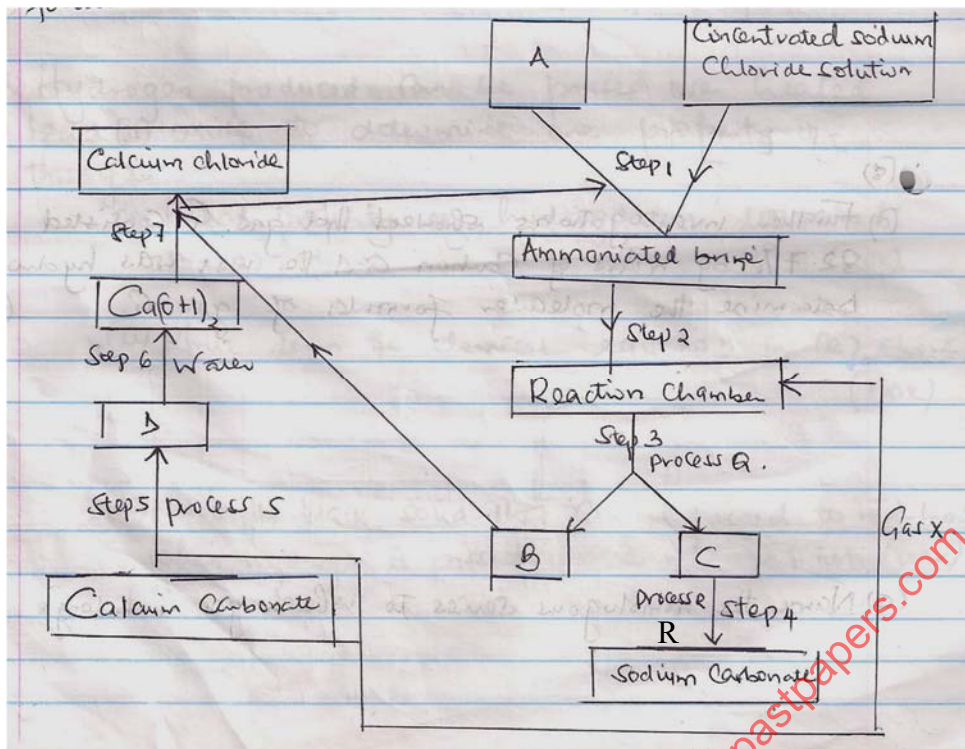 A
Concentrated sodium
Chloride solution
Step 1
Calcium chloride
Step 7
Ammoniated brine
Ca(OH)2
Step 2
Step 6 Water
Reaction Chamber
D
Step 3
process Q.
Step 5 process S
Gas X
B
C
Calcium Carbonate
process Step 4
R
Sodium Carbonate
pastpapers.com